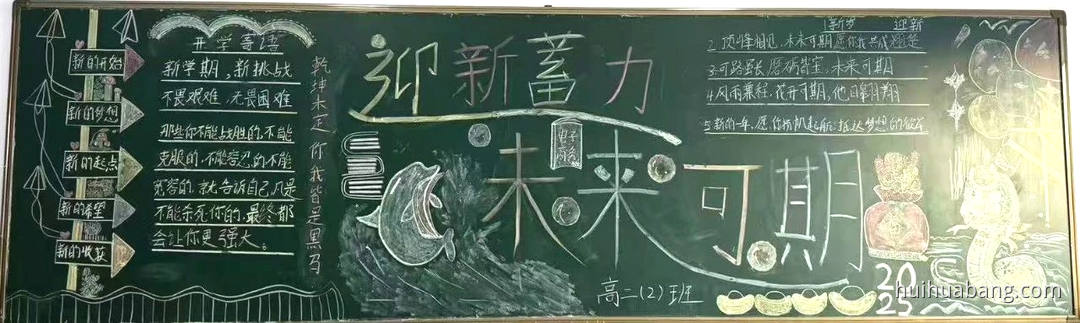 新的开始
新的梦想
新的起点
新的希望
新的收获
开学寄语
新学期,新挑战
不畏艰难,无畏困难
那些你不能战胜的,不能
克服的,不能容忍的不能
宽容的,就告诉自己,凡是
不能杀死你的,最终都
会让你更强大。
乾坤未定,你我皆是黑马
迎新蓄力
未来可期
高二(2)班
新岁 迎新
2.顶峰相见,未来可期,愿你我共成
3.可路虽长,磨砺皆宝,未来可期
4.风雨兼程,花开可期,他日翱翔
5.新的一年,愿你扬帆起航,抵达梦想的彼岸
2025
huihuabang.com